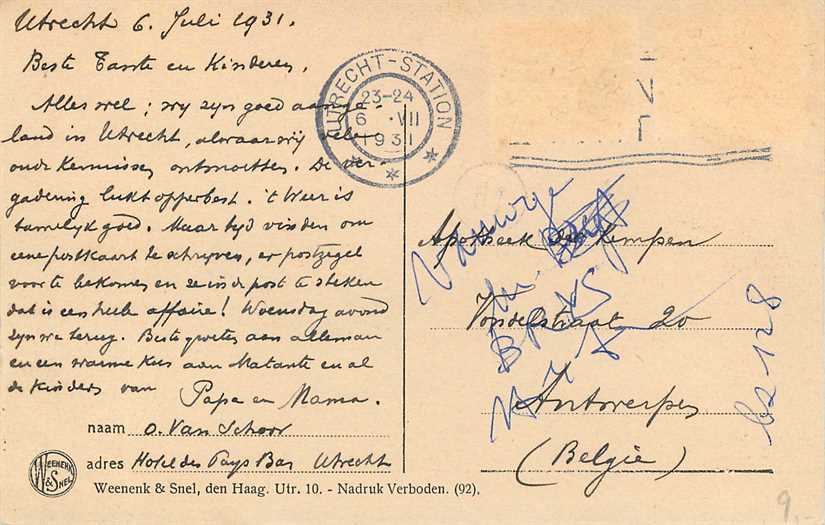 Utrecht 6. Juli 1931.
Beste Tante en Kinderen,
Alles wel; wij zijn goed aange-
land in Utrecht, alwaar wij vele
oude kennissen ontmoetten. De ver-
gadering lukt opperbest. 't Weer is
tamelijk goed. Maar tijd vinden om
eene postkaart te schrijven, er postzegel
voor te bekomen en ze in de post te steken
dat is een heele affaire! Woensdag avond
zijn we terug. Beste groeten aan alleman
en een warme kus aan Matante en al
de kinders van Papa en Mama.
naam O. Van Schoor
adres Hotel des Pays Bas Utrecht
WEENENK & SNEL
Weenenk & Snel, den Haag. Utr. 10. - Nadruk Verboden. (92).
UTRECHT-STATION
23-24
6 .VII
1931
Apotheek Van Kempen
Vondelstraat 20
Antwerpen
(België)
9.-